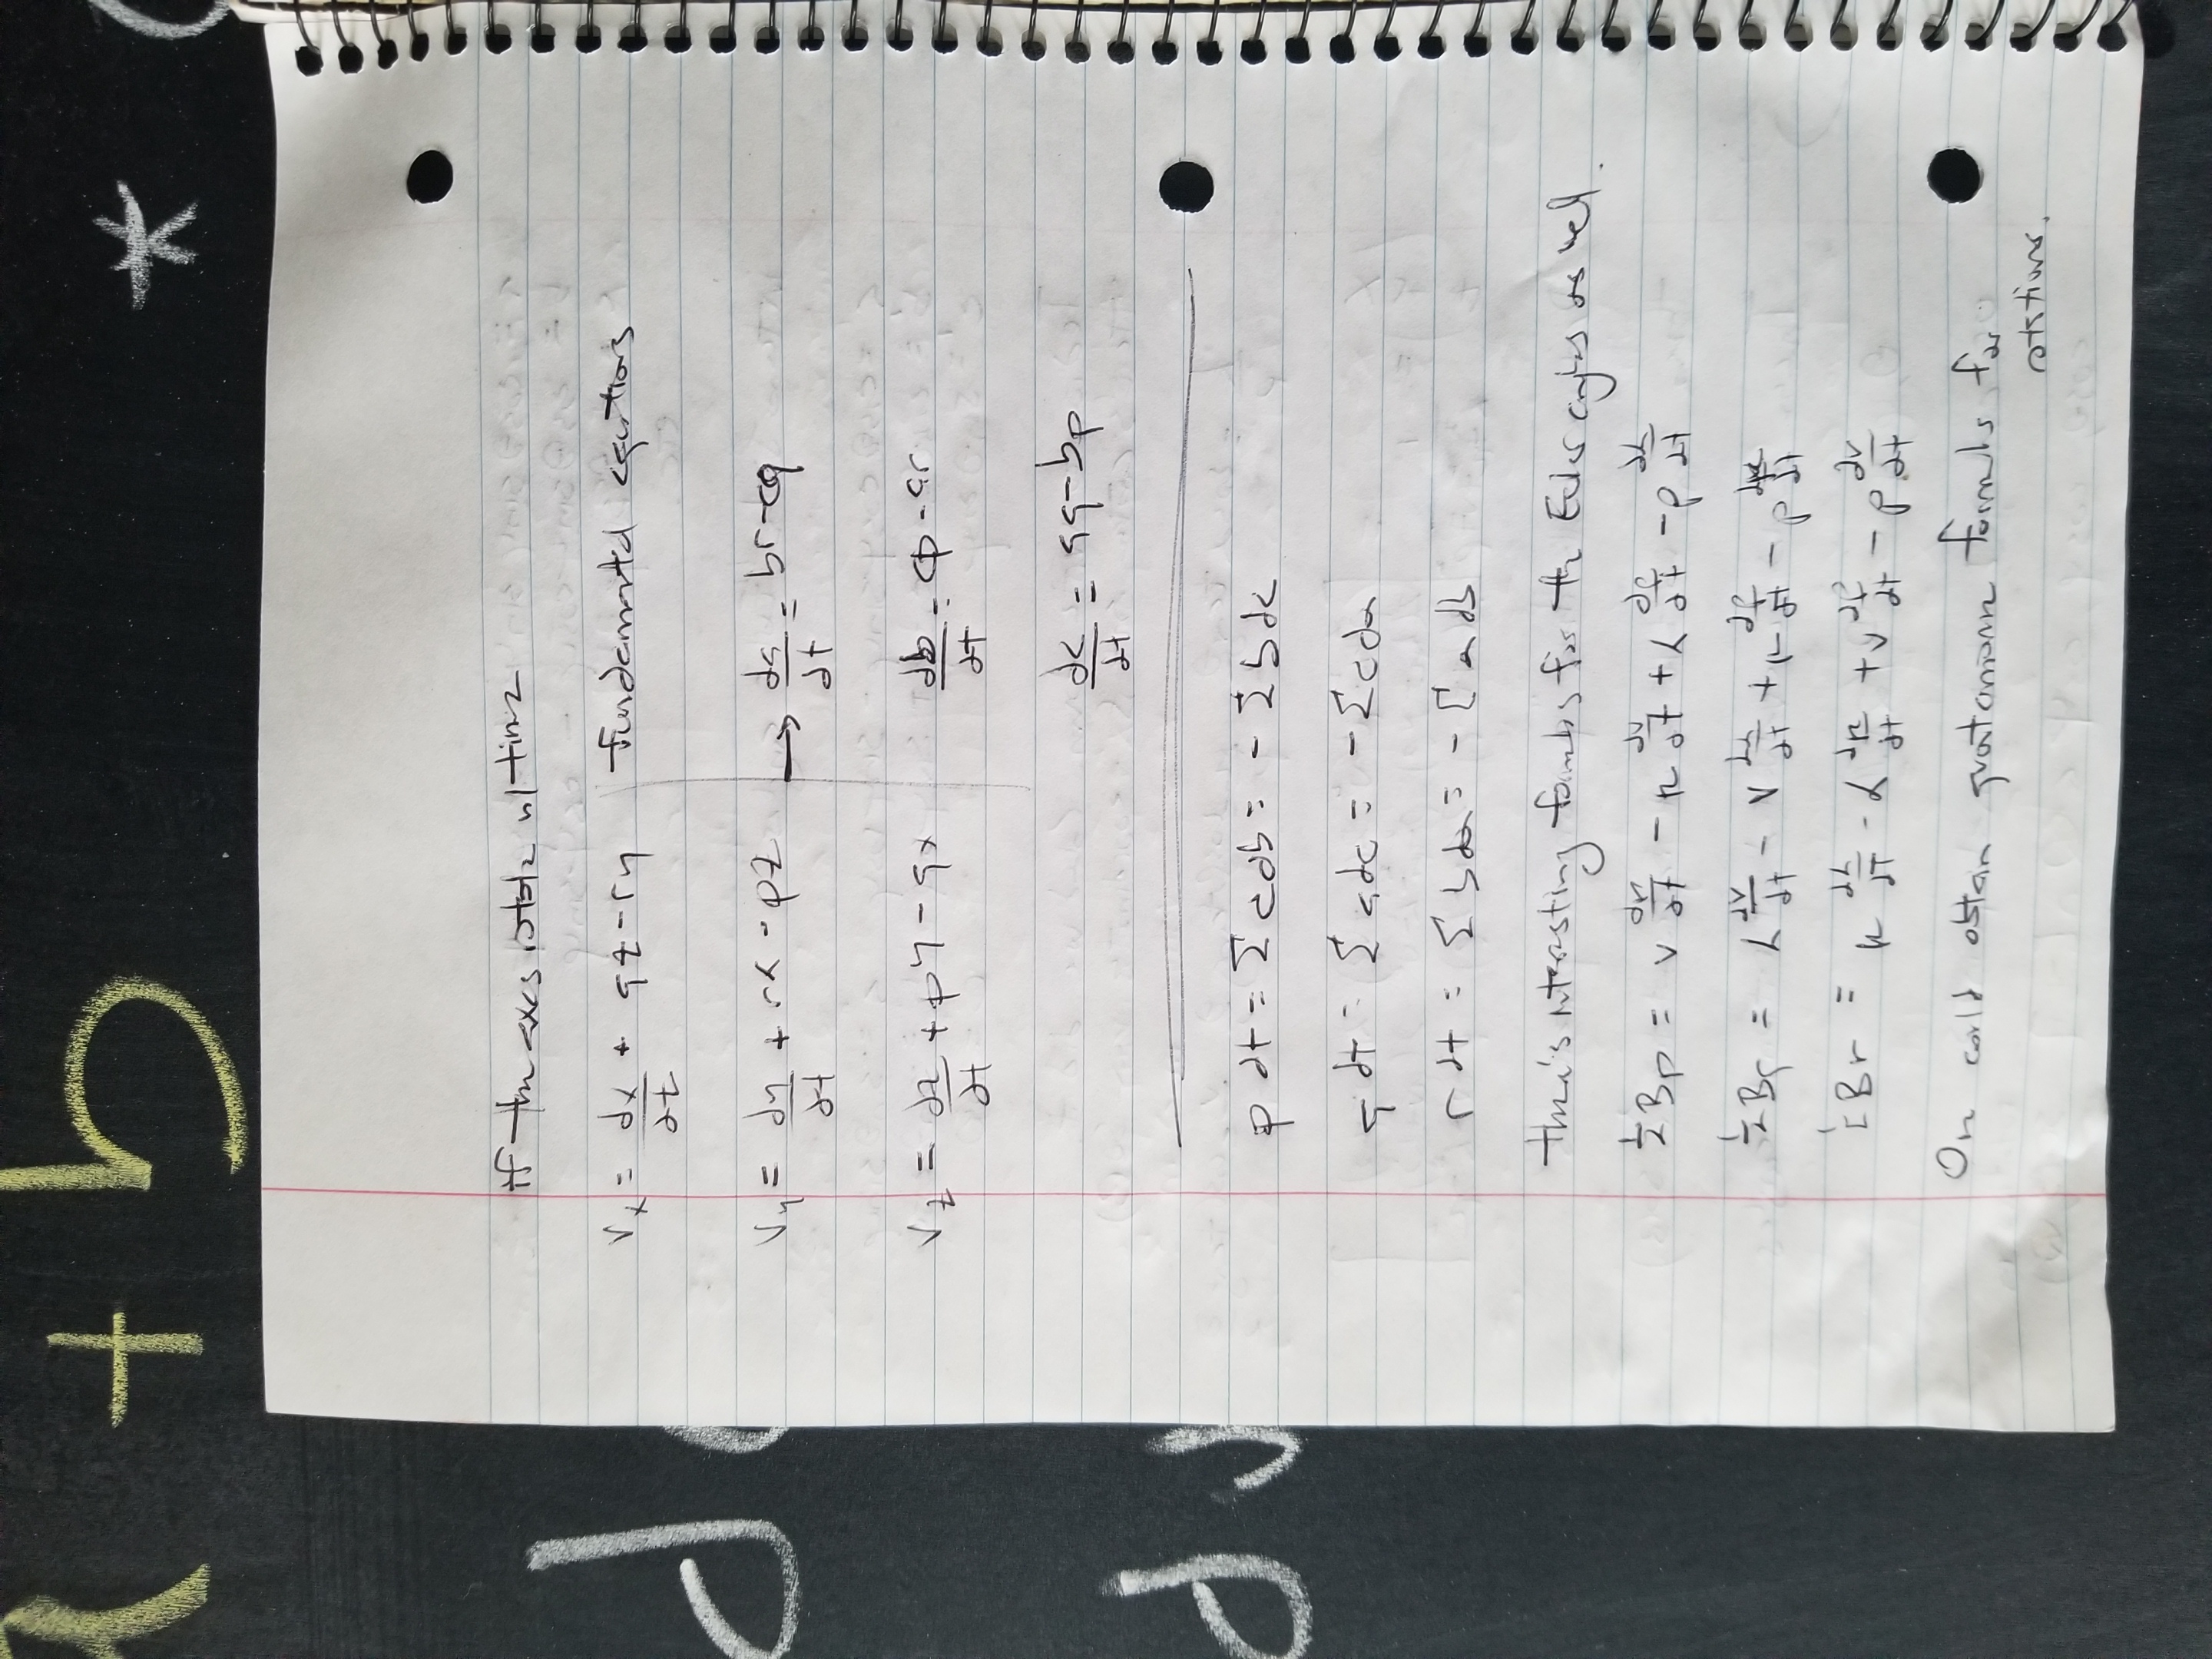 a + b * 
if the axes rotate w/ time
Vx = dx/dt + qz - ry fundamental equations
Vy = dy/dt + rx - pz → da/dt = br - cq
Vz = dz/dt + py - qx db/dt = cp - ar
dc/dt = aq - bp
p dt = Σ c db = - Σ b dc
q dt = Σ a dc = - Σ c da
r dt = Σ b da = - Σ a db
there's interesting formulas for the Euler angles as well.
½Bp = ν dμ/dt - μ dν/dt + λ dρ/dt - ρ dλ/dt
½Bq = λ dν/dt - ν dλ/dt + μ dρ/dt - ρ dμ/dt
½Br = μ dλ/dt - λ dμ/dt + ν dρ/dt - ρ dν/dt
One could obtain quaternionic formulas for
rotations.
d
d